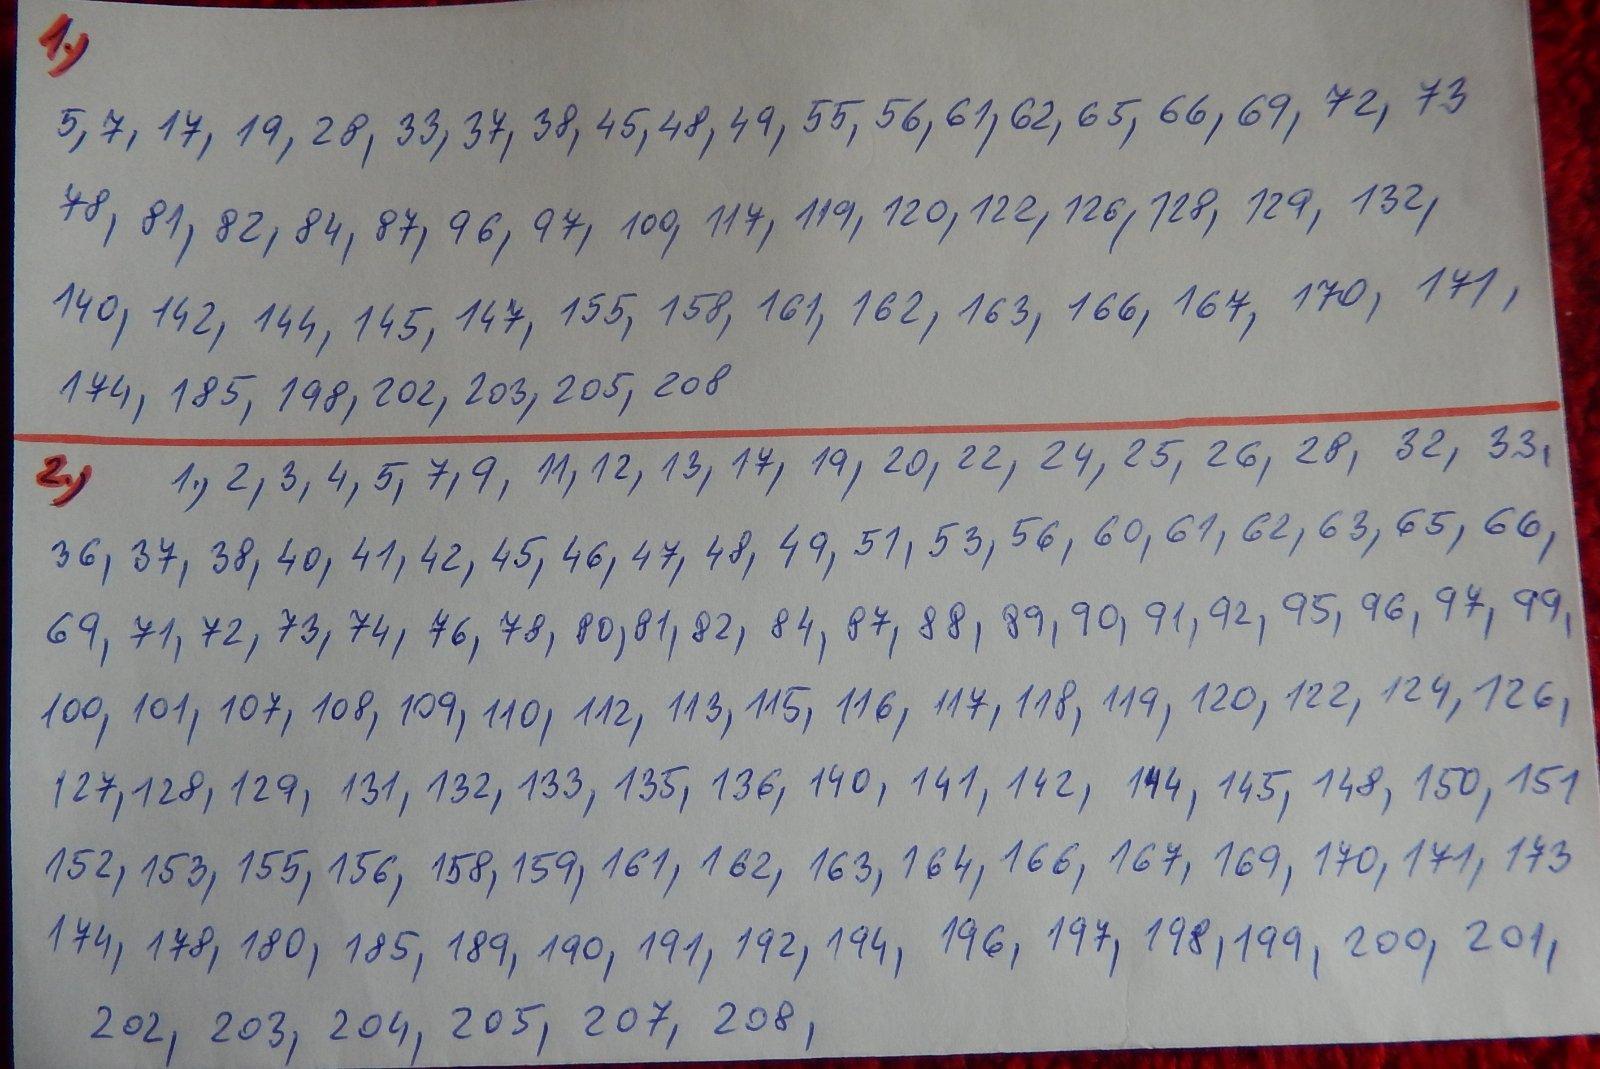 1.)
5, 7, 17, 19, 28, 33, 37, 38, 45, 48, 49, 55, 56, 61, 62, 65, 66, 69, 72, 73
78, 81, 82, 84, 87, 96, 97, 100, 117, 119, 120, 122, 126, 128, 129, 132,
140, 142, 144, 145, 147, 155, 158, 161, 162, 163, 166, 167, 170, 171,
174, 185, 198, 202, 203, 205, 208
2.) 1., 2, 3, 4, 5, 7, 9, 11, 12, 13, 17, 19, 20, 22, 24, 25, 26, 28, 32, 33,
36, 37, 38, 40, 41, 42, 45, 46, 47, 48, 49, 51, 53, 56, 60, 61, 62, 63, 65, 66,
69, 71, 72, 73, 74, 76, 78, 80, 81, 82, 84, 87, 88, 89, 90, 91, 92, 95, 96, 97, 99,
100, 101, 107, 108, 109, 110, 112, 113, 115, 116, 117, 118, 119, 120, 122, 124, 126,
127, 128, 129, 131, 132, 133, 135, 136, 140, 141, 142, 144, 145, 148, 150, 151
152, 153, 155, 156, 158, 159, 161, 162, 163, 164, 166, 167, 169, 170, 171, 173
174, 178, 180, 185, 189, 190, 191, 192, 194, 196, 197, 198, 199, 200, 201,
202, 203, 204, 205, 207, 208,